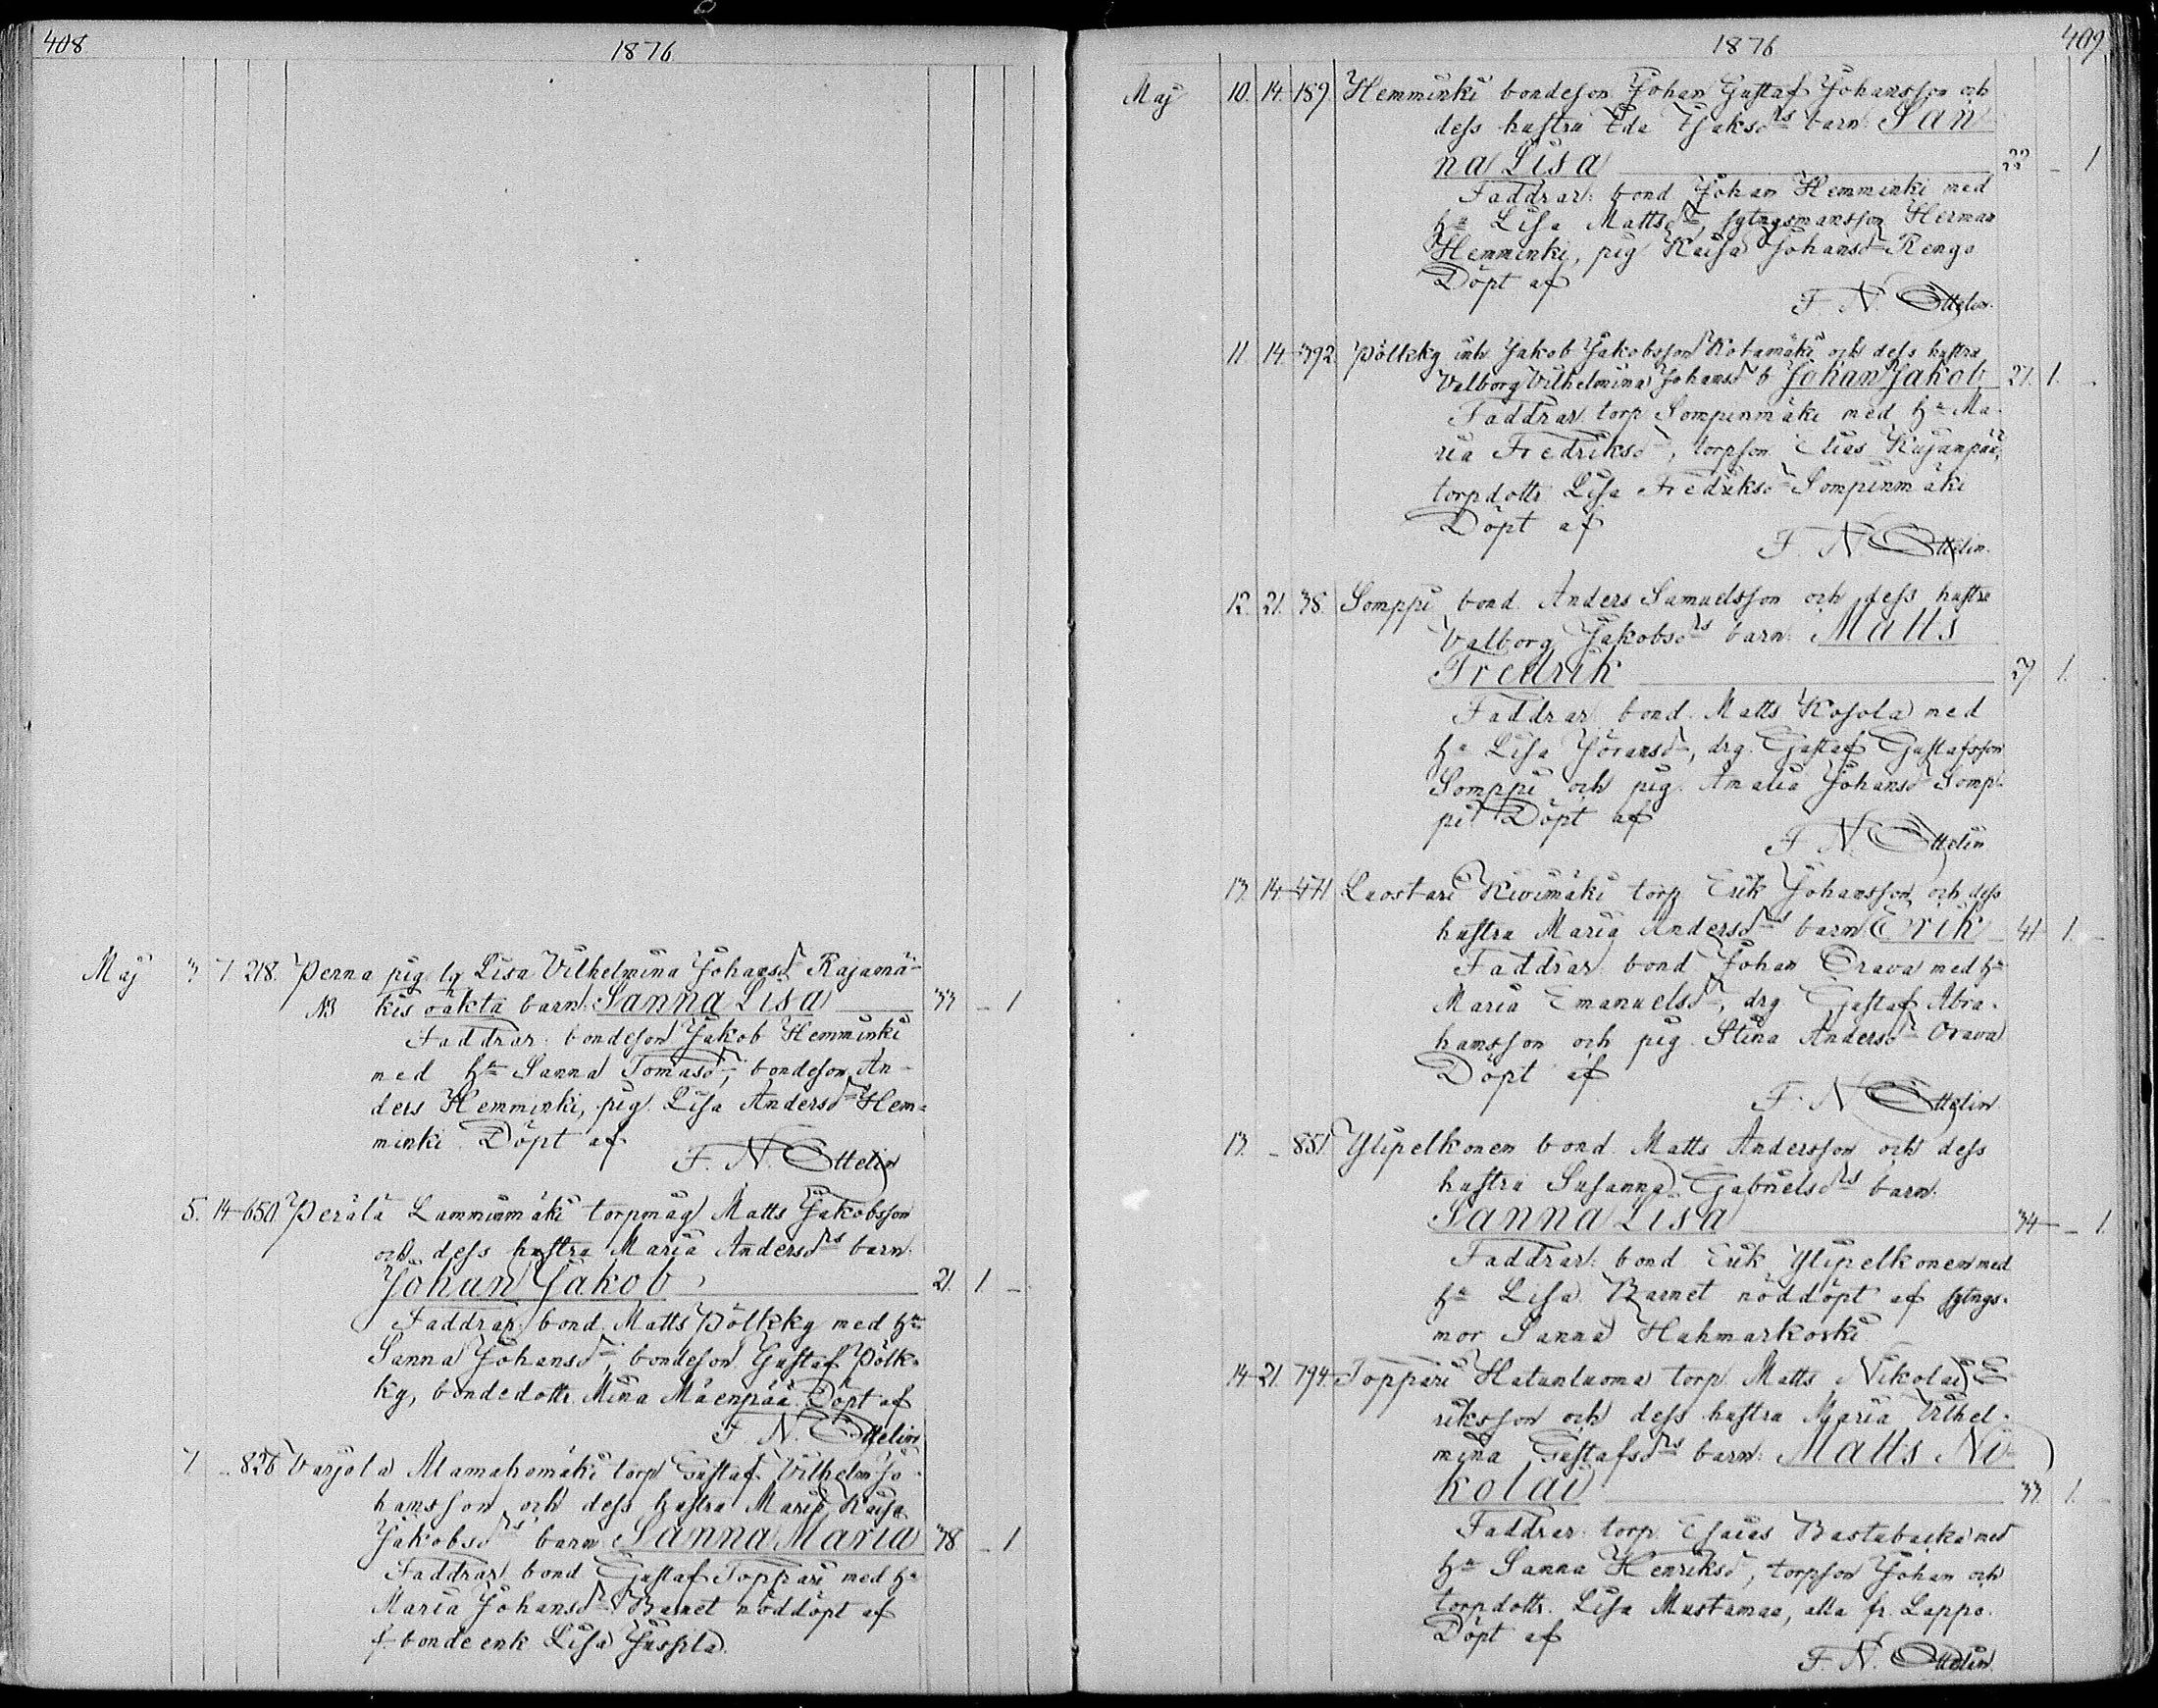 408
1876
Maj 3. 7. 218. Perna pig lg Lisa Vilhelmina Johansdr Rajamä-
NB kis oäkta barn: Sanna Lisa 33 – 1
Faddrar: bondeson Jakob Hemminki
med hu Sanna Tomasdr, bondeson An-
ders Hemminki, pig. Lisa Andersdr Hem-
minki. Döpt af
F. N. Ottelin
5. 14 650. Perälä Lamminmäki torpmåg Matts Jakobsson
och dess hustru Maria Andersdrs barn.
Johan Jakob 21. 1. –
Faddrar: bond. Matts Pölkky med hu
Sanna Johansdr, bondeson Gustaf Pölk-
ky, bondedottr Mina Mäenpää. Döpt af
F. N. Ottelin
7 – 826 Varjola Mamahamäki torp Gustaf Vilhelm Jo-
hansson och dess hustru Maria Kaisa
Jakobsdrs barn Sanna Maria 38 – 1
Faddrar bond Gustaf Toppari med hu
Maria Johansdr. Barnet nöddöpt af
f bonde enk Lisa Jussila.
1876 409
Maj 10. 14. 189. Hemminki bondeson Johan Gustaf Johansson och
dess hustru Eda Isaksdrs barn: San
na Lisa 22 – 1
Faddrar: bond Johan Hemminki med
hu Lisa Mattsdr, sytngsmansson Herman
Hemminki, pig Kaisa Johansdr Rengo
Döpt af
F. N. Ottelin.
11 14 392 Pölkky inh Jakob Jakobsson Kotamäki och dess hustru
Valborg Vilhelmina Johansdr b Johan Jakob 27. 1. –
Faddrar torp Sompinmäki med hu Ma-
ria Fredriksdr, torpson Elias Kujanpää,
torpdottr Lisa Fredriksdr Sompinmäki
Döpt af
F. N. Ottelin.
12. 21. 38. Somppi bond. Anders Samuelsson och dess hustru
Valborg Jakobsdrs barn: Matts
Fredrik 29 1.
Faddrar bond. Matts Kosola med
hu Lisa Göransdr, drg. Gustaf Gustafsson
Somppi och pig. Amalia Johansdr Somp-
pi. Döpt af
F. N. Ottelin
13. 14 471 Luostari Kivimäki torp Erik Johansson och dess
hustru Maria Andersdrs barn Erik 41 1. –
Faddrar bond Johan Orava med hu
Maria Emanuelsdr, drg Gustaf Abra-
hamsson och pig Stina Andersdr Orava
Döpt af
F. N. Ottelin
13. – 851. Ylipelkonen bond. Matts Andersson och dess
hustru Susanna Gabrielsdrs barn.
Sanna Lisa 34 – 1.
Faddrar: bond Erik Ylipelkonen med
hu Lisa. Barnet nöddöpt af sytngs-
mor Sanna Hahmarkoski
14 21. 794. Toppari Hatunluoma torp Matts Nikolai E-
riksson och dess hustru Maria Vilhel-
mina Gustafsdrs barn: Matts Ni-
kolai 33. 1. –
Faddrar torp. Esaias Rastabacka med
hu Sanna Henriksdr, torpson Johan och
torpdottr. Lisa Mustamaa, alla fr. Lappo.
Döpt af
F. N. Ottelin.